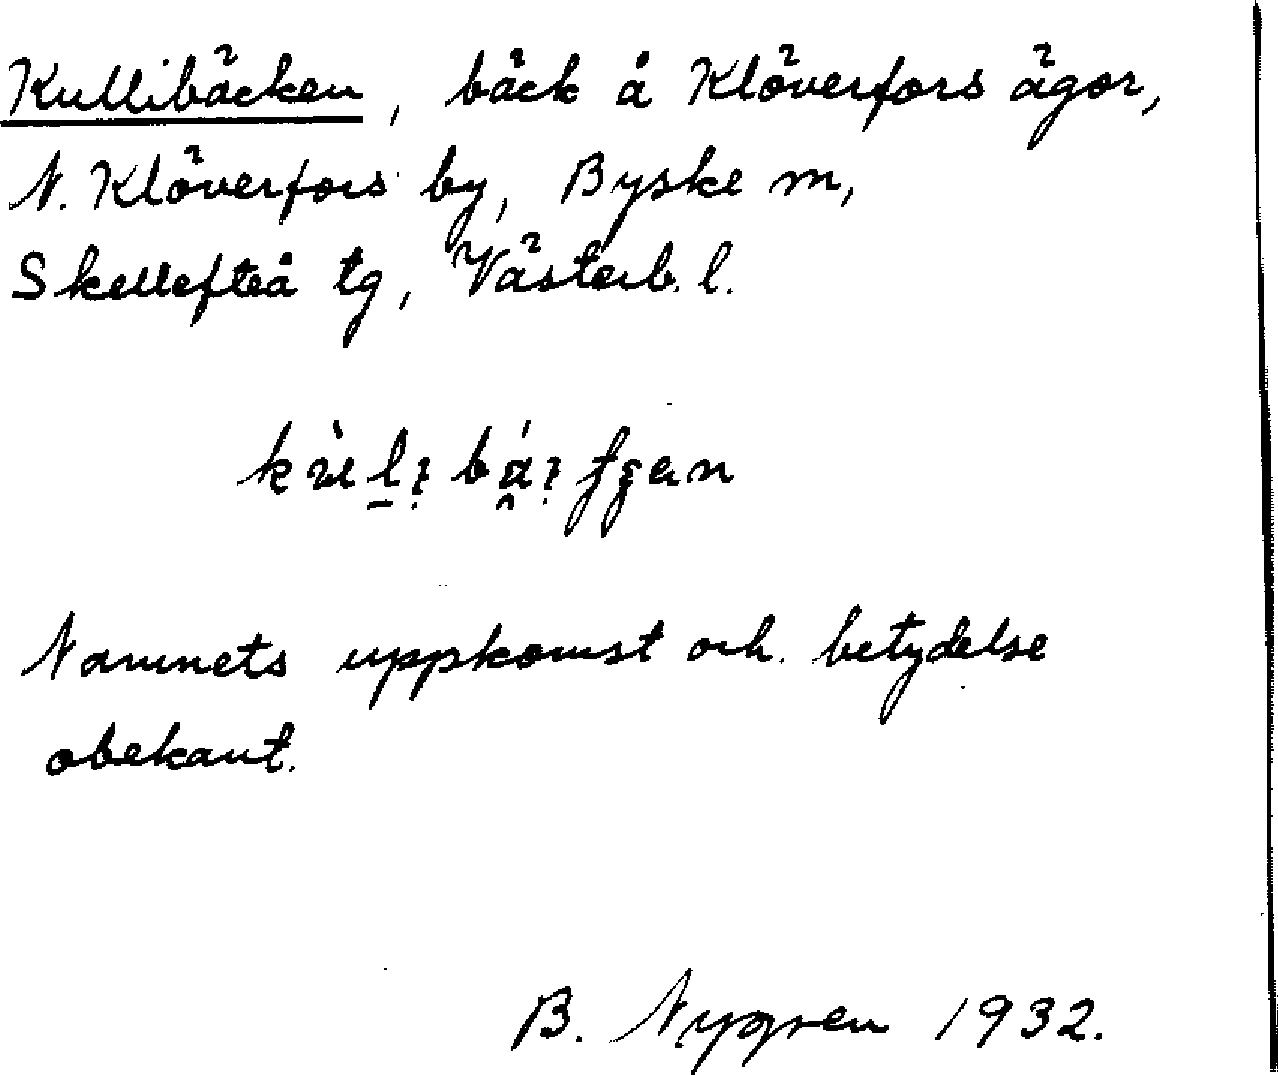 Kullibäcken, bäck å Klöverfors ägor,
N. Klöverfors by, Byske m,
Skellefteå tg, Västerb. l.
Namnets uppkomst och betydelse
obekant.
B. Nygren 1932.